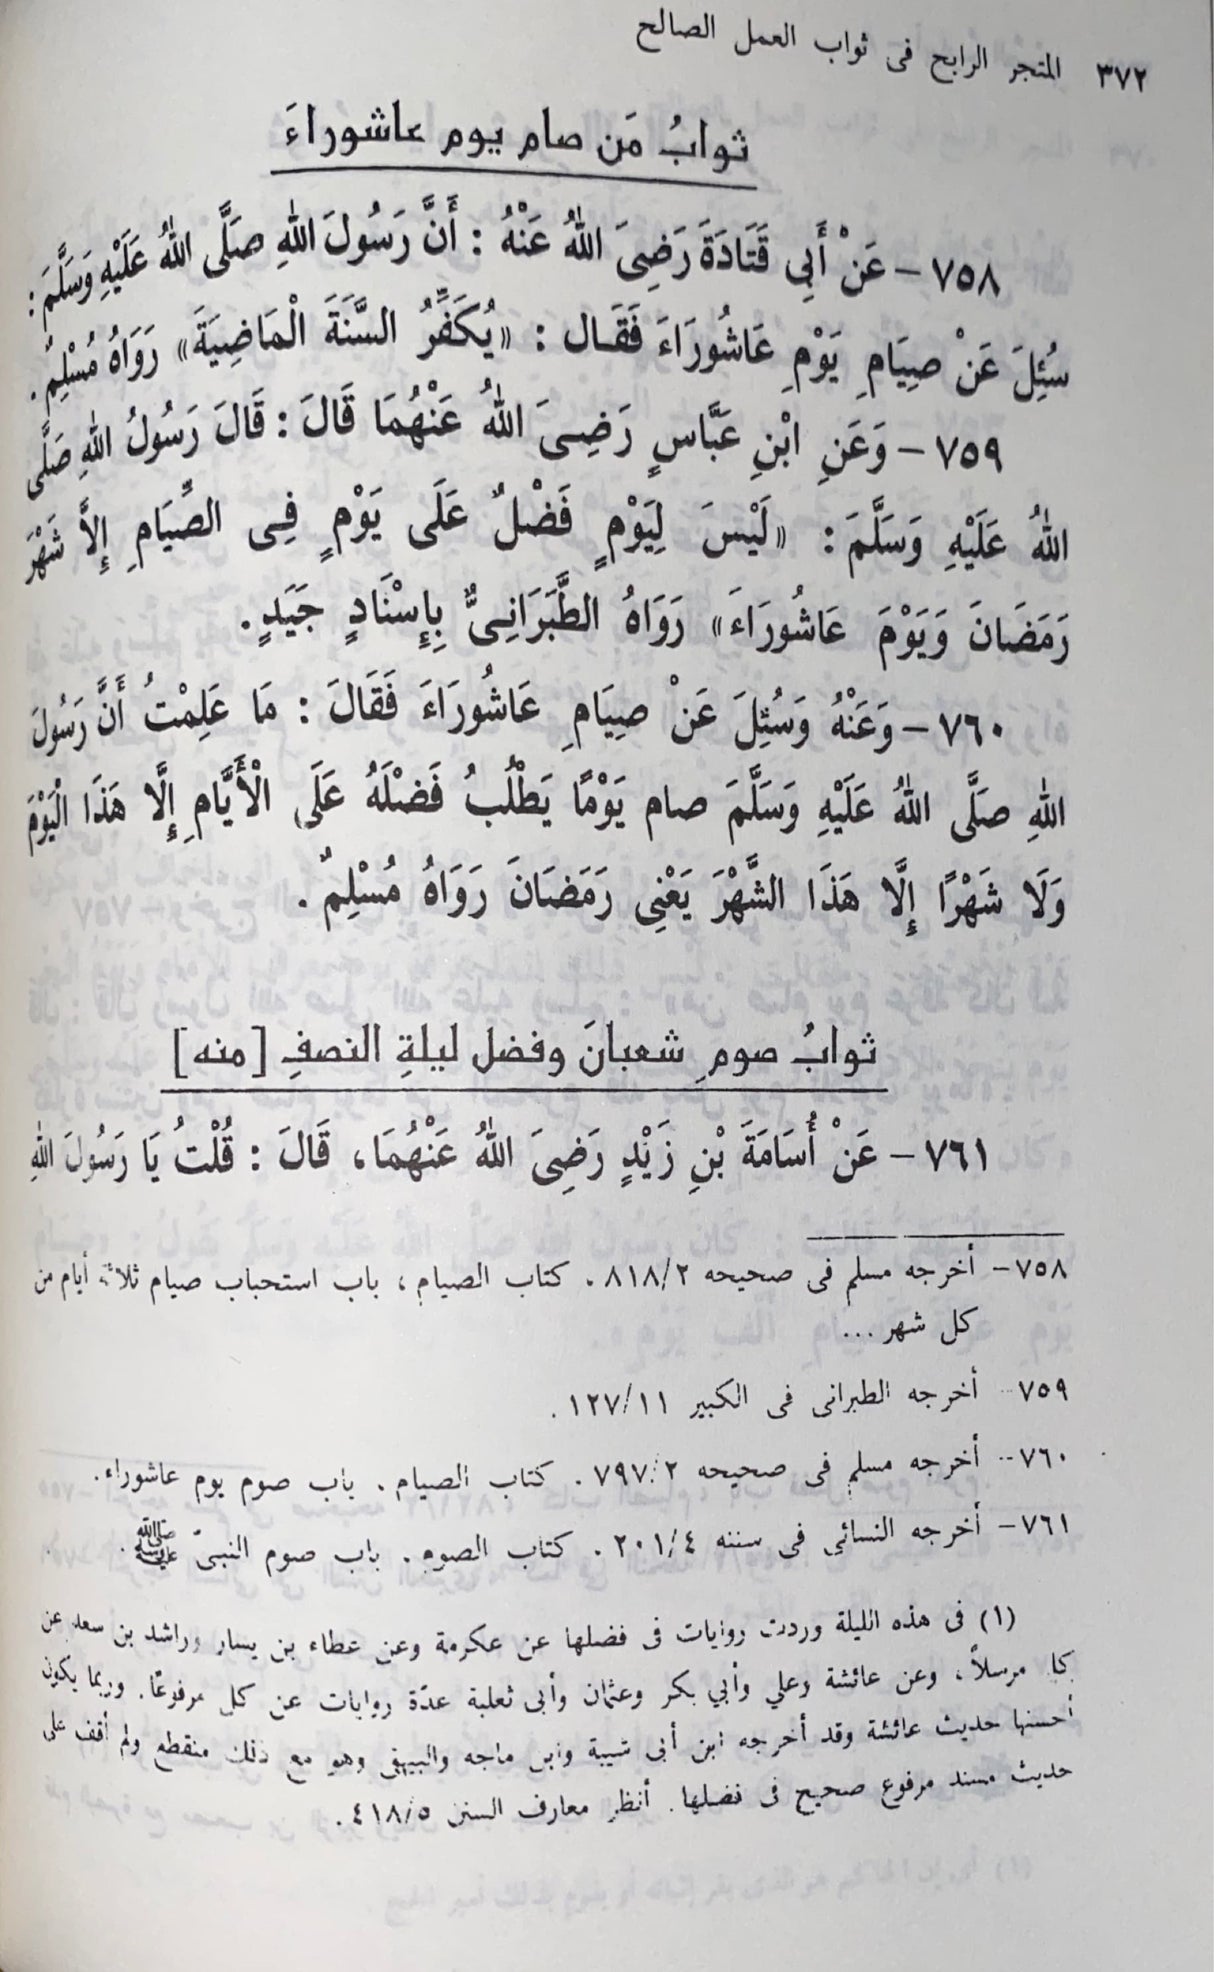 ٣٧٢ المتجر الرابح فى ثواب العمل الصالح
ثوابُ مَن صام يوم عاشوراءَ
٧٥٨ – عَنْ أَبِي قَتَادَةَ رَضِىَ اللهُ عَنْهُ : أَنَّ رَسُولَ اللهِ صَلَّى اللهُ عَلَيْهِ وَسَلَّمَ :
سُئِلَ عَنْ صِيَامِ يَوْمِ عَاشُورَاءَ فَقَال : «يُكَفِّرُ السَّنَةَ الْمَاضِيَةَ» رَوَاهُ مُسْلِمٌ .
٧٥٩ – وَعَنِ ابْنِ عَبَّاسٍ رَضِىَ اللهُ عَنْهُمَا قَالَ : قَالَ رَسُولُ اللهِ صَلَّى
اللهُ عَلَيْهِ وَسَلَّمَ : «لَيْسَ لِيَوْمٍ فَضْلٌ عَلَى يَوْمٍ فِى الصِّيَامِ إِلاَّ شَهْرَ
رَمَضَانَ وَيَوْمَ عَاشُورَاءَ» رَوَاهُ الطَّبَرَانِىُّ بِإِسْنَادٍ جَيَدٍ .
٧٦٠ – وَعَنْهُ وَسُئِلَ عَنْ صِيَامِ عَاشُورَاءَ فَقَالَ : مَا عَلِمْتُ أَنَّ رَسُولَ
اللهِ صَلَّى اللهُ عَلَيْهِ وَسَلَّمَ صام يَوْمًا يَطْلُبُ فَضْلَهُ عَلَى الْأَيَّامِ إِلَّا هَذَا الْيَوْمَ
وَلَا شَهْرًا إِلَّا هَذَا الشَّهْرَ يَعْنِى رَمَضَانَ رَوَاهُ مُسْلِمٌ .
ثوابُ صومِ شعبانَ وفضل ليلةِ النصفِ [منه]
٧٦١ – عَنْ أُسَامَةَ بْنِ زَيْدٍ رَضِىَ اللهُ عَنْهُمَا، قَالَ : قُلْتُ يَا رَسُولَ اللهِ
٧٥٨ – أخرجه مسلم فى صحيحه ٨١٨/٢ . كتاب الصيام ، باب استحباب صيام ثلاثة أيام من
كل شهر ...
٧٥٩ – أخرجه الطبرانى فى الكبير ١٢٧/١١ .
٧٦٠ – أخرجه مسلم فى صحيحه ٧٩٧/٢ . كتاب الصيام . باب صوم يوم عاشوراء .
٧٦١ – أخرجه النسائى فى سننه ٢٠١/٤ . كتاب الصوم . باب صوم النبىّ ﷺ .
(١) فى هذه الليلة وردت روايات فى فضلها عن عكرمة وعن عطاء بن يسار وراشد بن سعد عن
كل مرسلاً ، وعن عائشة وعلي وأبي بكر وعثمان وأبى ثعلبة عدّة روايات عن كل مرفوعًا . وربما يكون
أحسنها حديث عائشة وقد أخرجه ابن أبى شيبة وابن ماجه والبيهقى وهو مع ذلك منقطع ولم أقف على
حديث مسند مرفوع صحيح فى فضلها . أنظر معارف السنن ٤١٨/٥ .